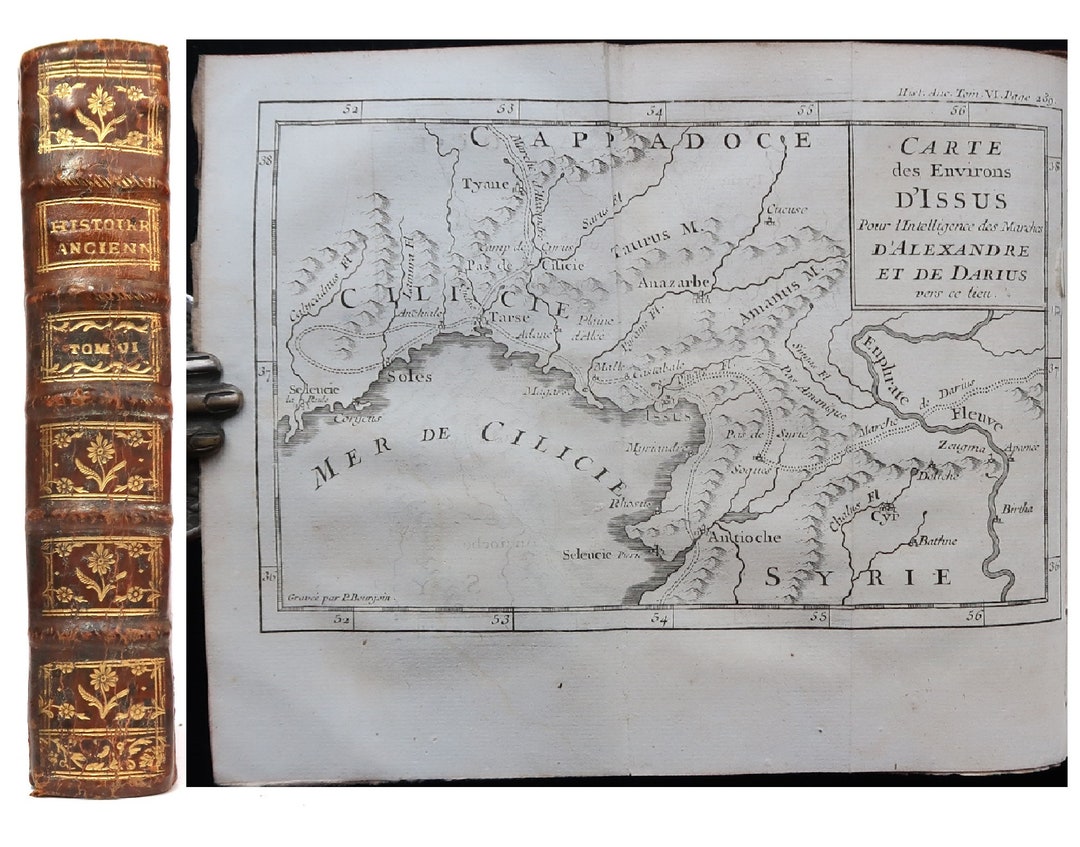 HISTOIRE
ANCIENN
TOM VI
Hist. Anc. Tom. VI. Page 289.
52 53 54 55 56
38
38
37
37
36
36
52 53 54 55 56
CARTE
des Environs
D'ISSUS
Pour l'Intelligence des Marches
D'ALEXANDRE
ET DE DARIUS
vers ce lieu.
CAPPADOCE
Tyane
Marche d'Alexandre
Sarus Fl
Cucuse
Camp de Cyrus
Taurus M.
Pas de Cilicie
CILICIE
Calycadnus Fl
Anazarbe
Amanus M.
Anchiale
Tarse
Adane
Plaine d'Alée
Soles
Seleucie
Corycus
Magarse
Malle
Castabale
Pinare Fl
Issus
Pas Amanique
Euphrate
Fleuve
Marche de Darius
MER DE CILICIE
Myriandre
Pas de Syrie
Soques
Zeugma
Apamée
Doliche
Rhosus
Chalus Fl
Cyr
Birtha
Antioche
Bathne
Seleucie Pierie
SYRIE
Gravée par P. Bourgoin.